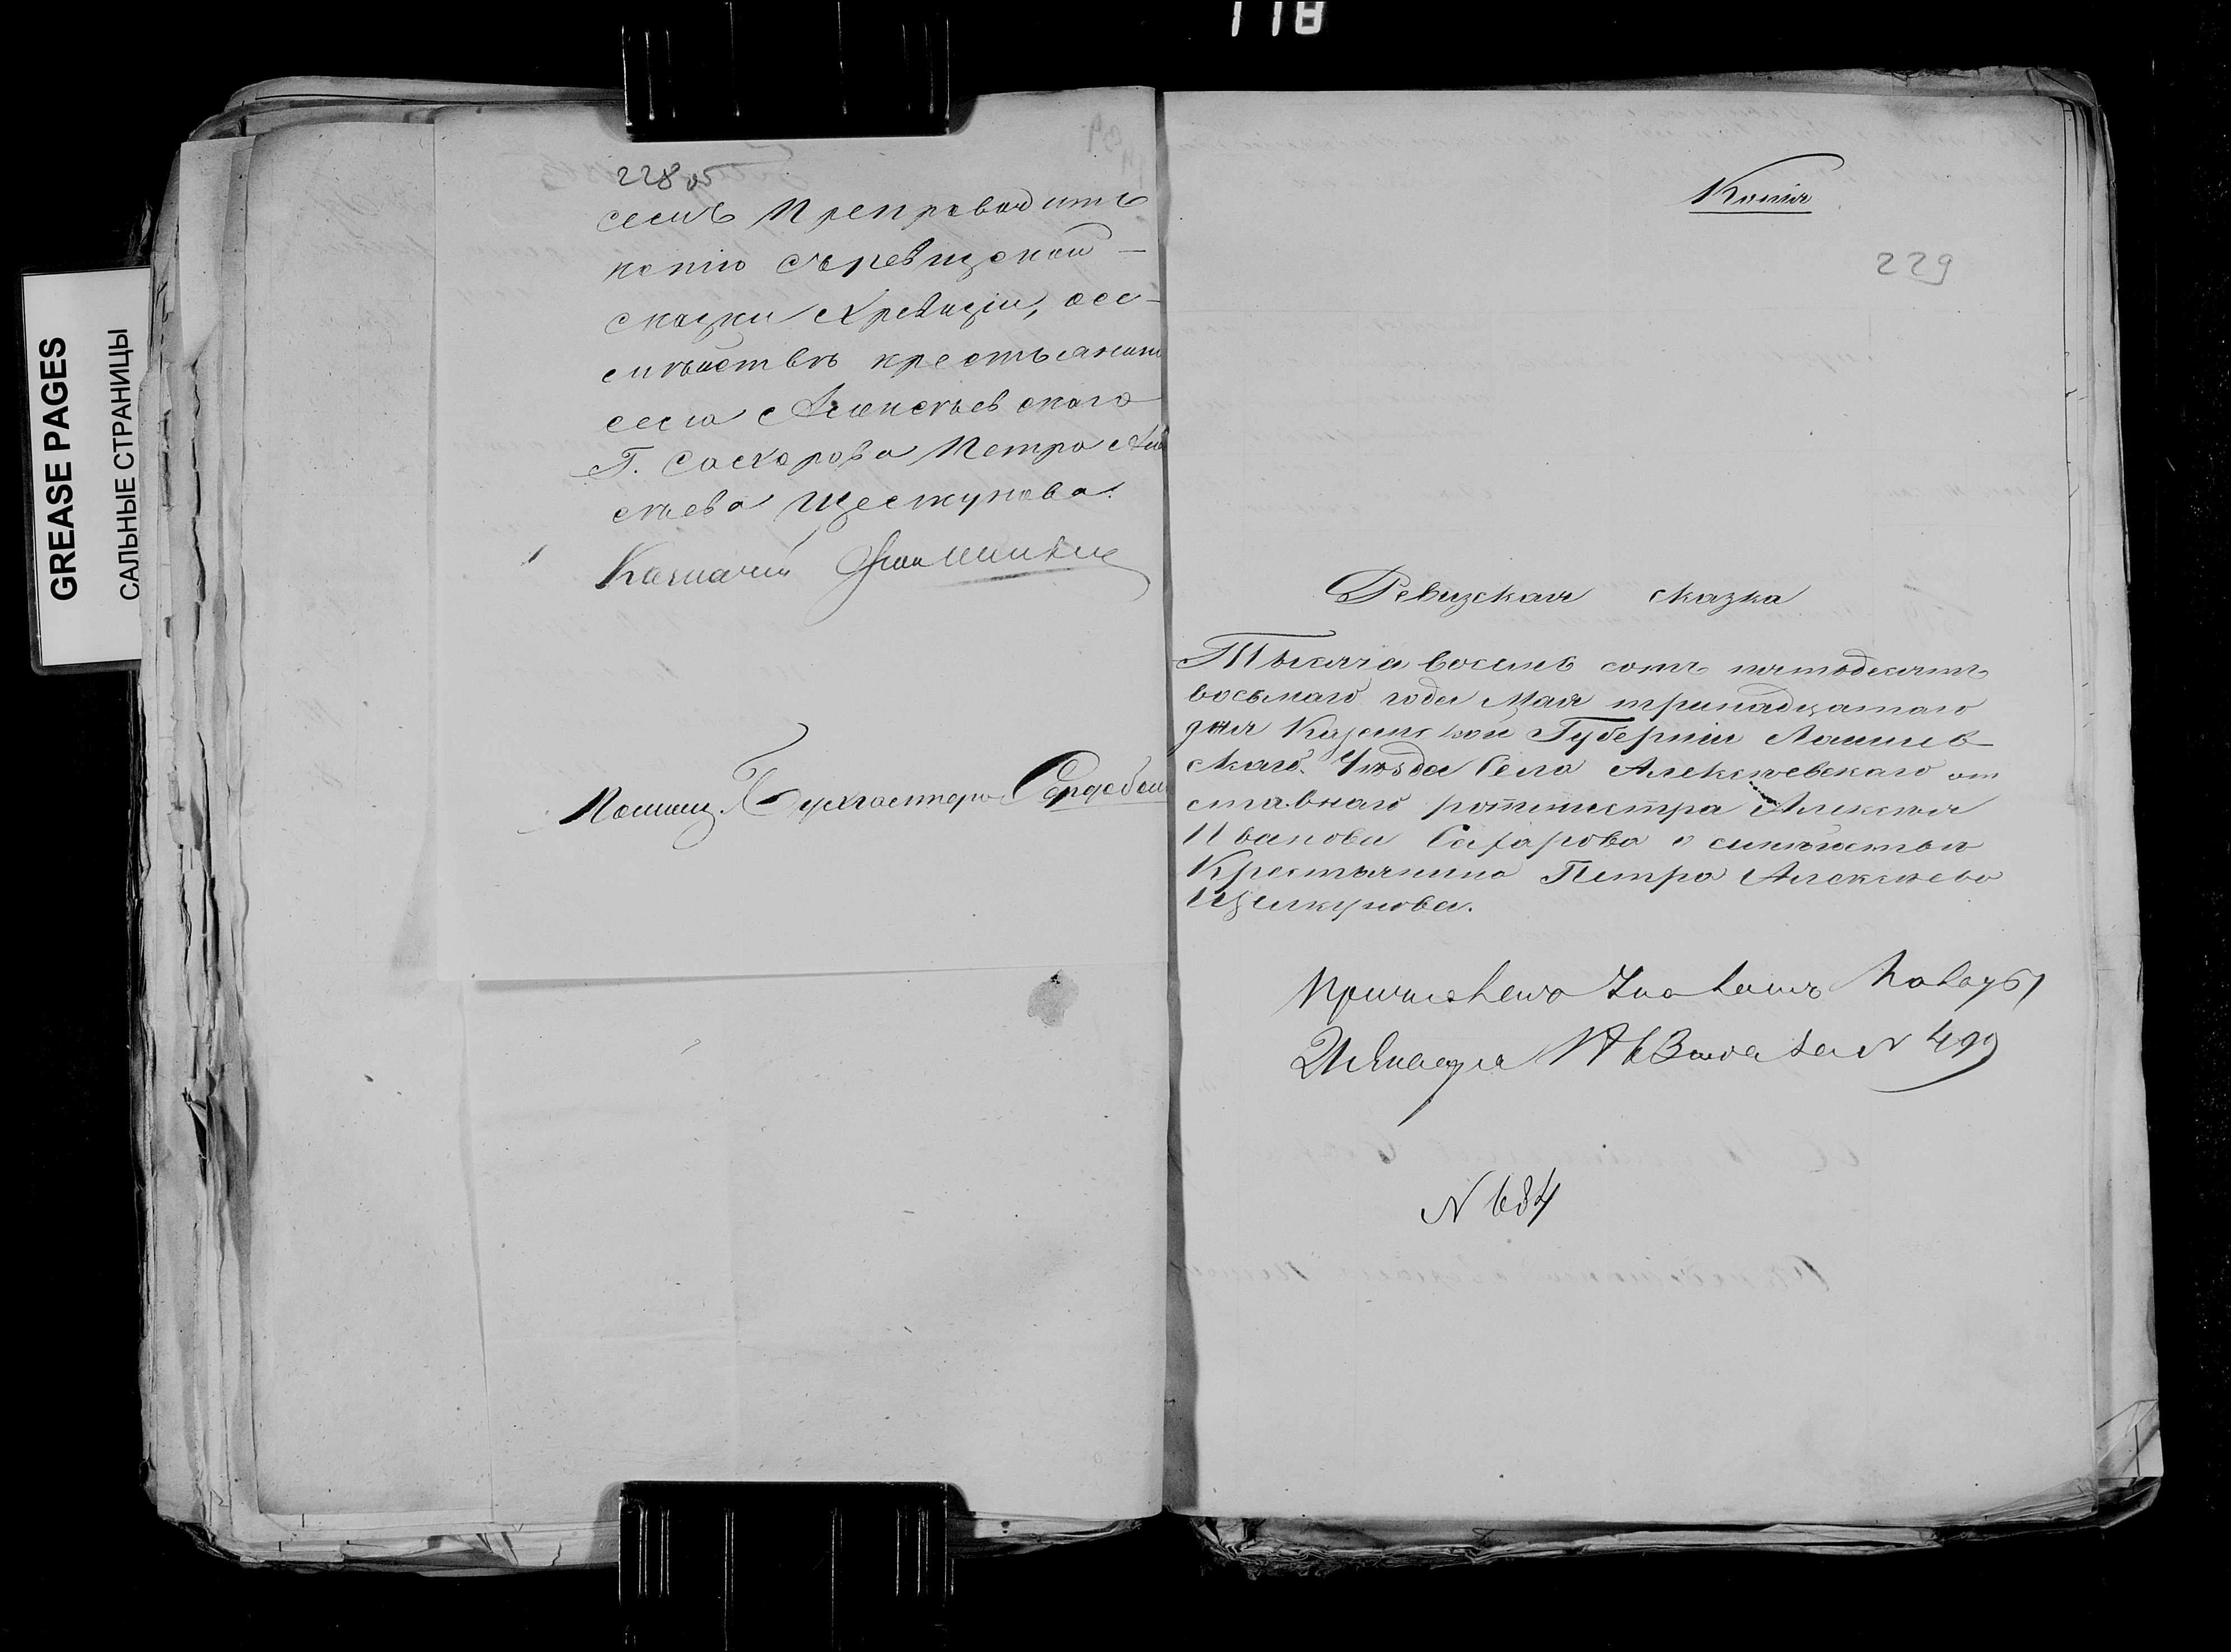 118
GREASE PAGES
САЛЬНЫЕ СТРАНИЦЫ
228 об
семъ Препроводить
копію съ ревизской
сказки X ревизіи, о се-
мѣйствѣ крестьянина
села Алексѣевскаго
Г. Сахарова Петра Але
ксѣева Щелкунова.
Казначей
Помощ. Бухгалтера
Копія
229
Ревизская сказка
Тысяча восемь сотъ пятьдесятъ
восьмаго года Мая тринадцатаго
дня Казанской Губерніи Лаишев
скаго Уѣзда Села Алексѣевскаго от
ставнаго ротмистра Алексѣя
Иванова Сахарова о семѣйствѣ
Крестьянина Петра Алексѣева
Щелкунова.
N 499
N 684